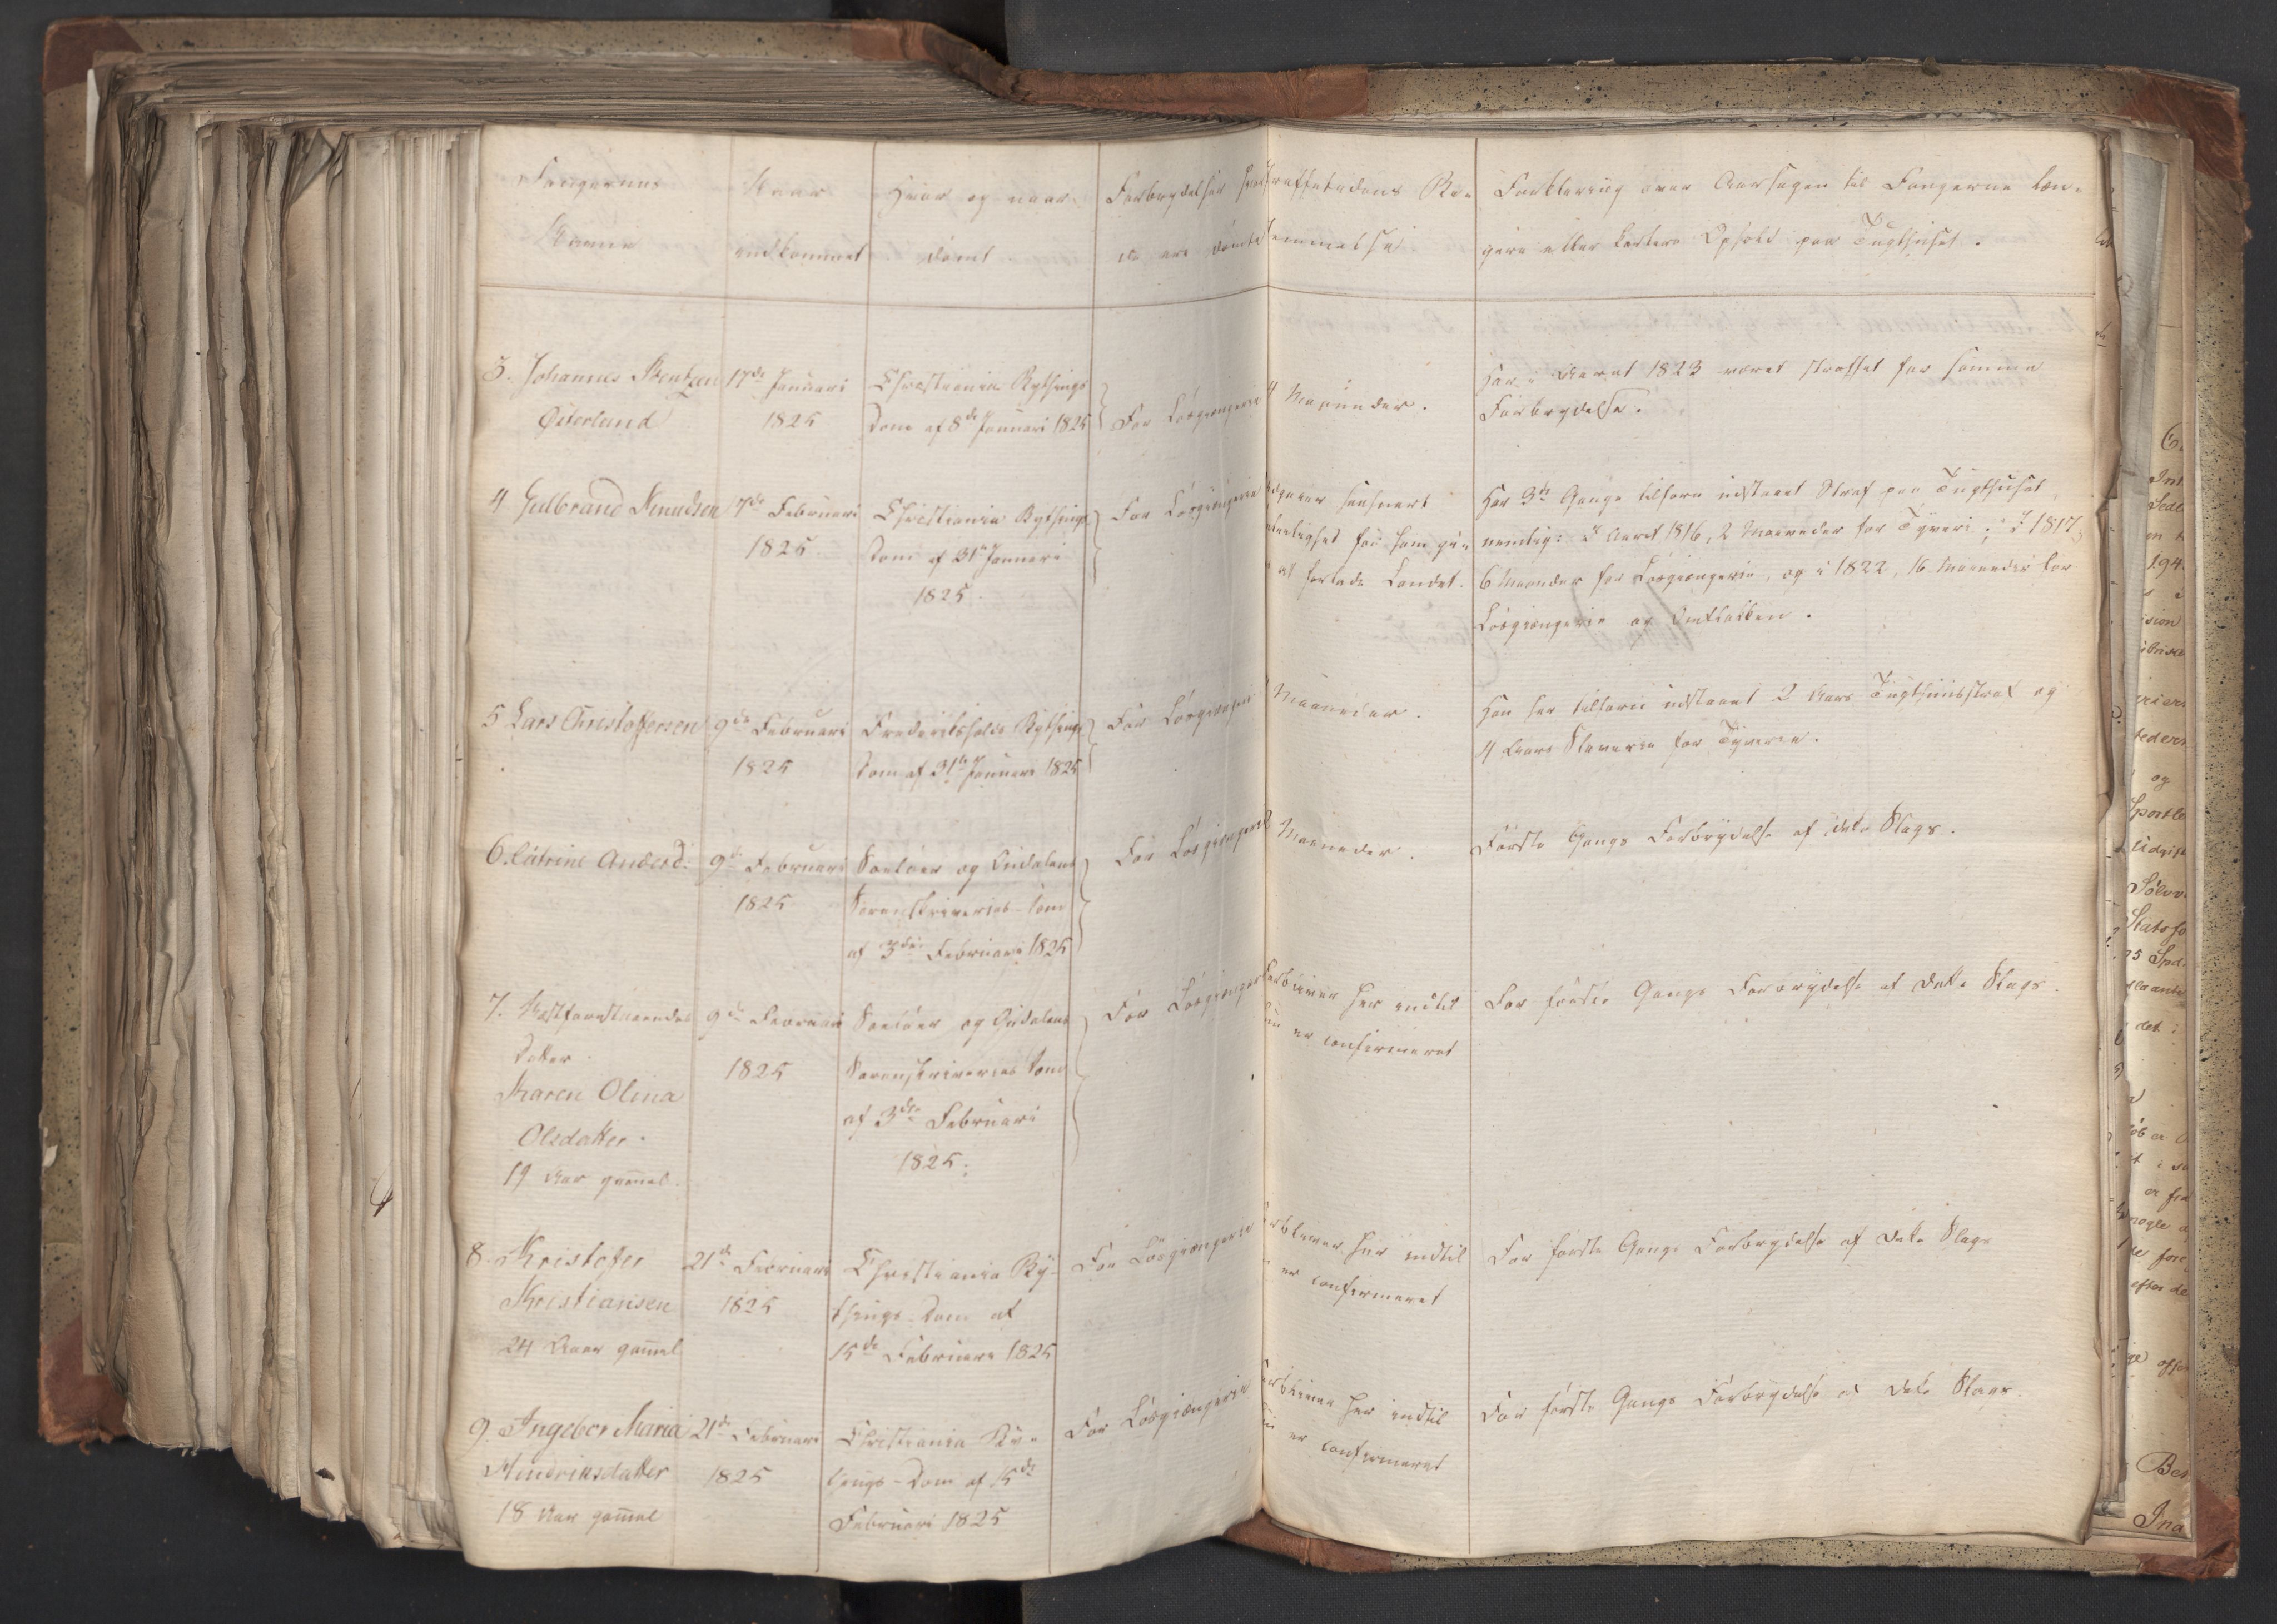 Fangernes
Navne
Naar
indkommet
Hvor og naar
dømt
Forbrydelser
de ere dømte
Straffetidens Be-
stemmelse
Forklaring over Aarsagen til Fangerne læn-
gere eller kortere Ophold paa Tugthuset.
3. Johannes Bentzen
Østerlund
17de Januari
1825
Christiania Bythings
Dom af 8de Januari 1825
For Løsgiængerie
4 Maaneder.
Har i Aaret 1823 været straffet for samme
Forbrydelse.
4 Gulbrand Knudsen
7de Februari
1825
Christiania Bythings
Dom af 31te Januari
1825.
For Løsgiængerie
saasnart
at forlade Landet.
Har 3de Gange tilforn udstaaet Straf paa Tugthuset
nemlig: I Aaret 1816, 2 Maaneder for Tyveri; I 1817,
6 Maaneder for Løsgiængerie, og i 1822, 16 Maaneder for
Løsgiængerie og Omflakken.
5 Lars Christoffersen
9de Februari
1825
Frederikshalds Bythings
Dom af 31te Januari 1825
For Løsgiængeri
Maaneder.
Han har tilforn udstaaet 2 Aars Tugthuusstraf og
4 Aars Slaverie for Tyverie.
6. Catrine Andersd.
9de Februari
1825
Soeløer og Oudalens
Sorenskriveries-Dom
af 3die Februari 1825
For Løsgiængerie
Maaneder.
Første Gangs Forbrydelse af dette Slags.
7. Bestforestaaendes
Datter
Karen Olina
Olsdatter.
19 Aar gammel.
9de Februari
1825
Soeløer og Oudalens
Sorenskriveries Dom
af 3die Februari
1825.
For Løsgiængerie
Forbliver her indtil
hun er confirmeret
For første Gangs Forbrydelse af dette Slags.
8. Kristofer
Kristiansen
24 Aar gammel
21de Februari
1825
Christiania By-
things-Dom af
15de Februari 1825
For Løsgiængerie
Forbliver her indtil
er confirmeret
For første Gangs Forbrydelse af dette Slags
9. Ingebor Maria
Hindriksdatter
18 Aar gammel
21de Februari
1825
Christiania By-
things-Dom af 15de
Februari 1825
For Løsgiængerie
Forbliver her indtil
hun er confirmeret
For første Gangs Forbrydelse af dette Slags.